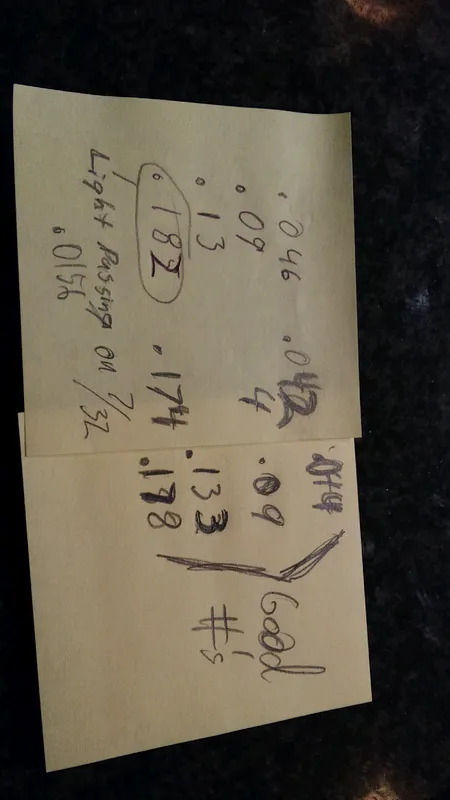 .046 .042
.09 4 .09 Good
.13 .133 #'s
.182 .174 .178
Light Passing on 7/32
.0156